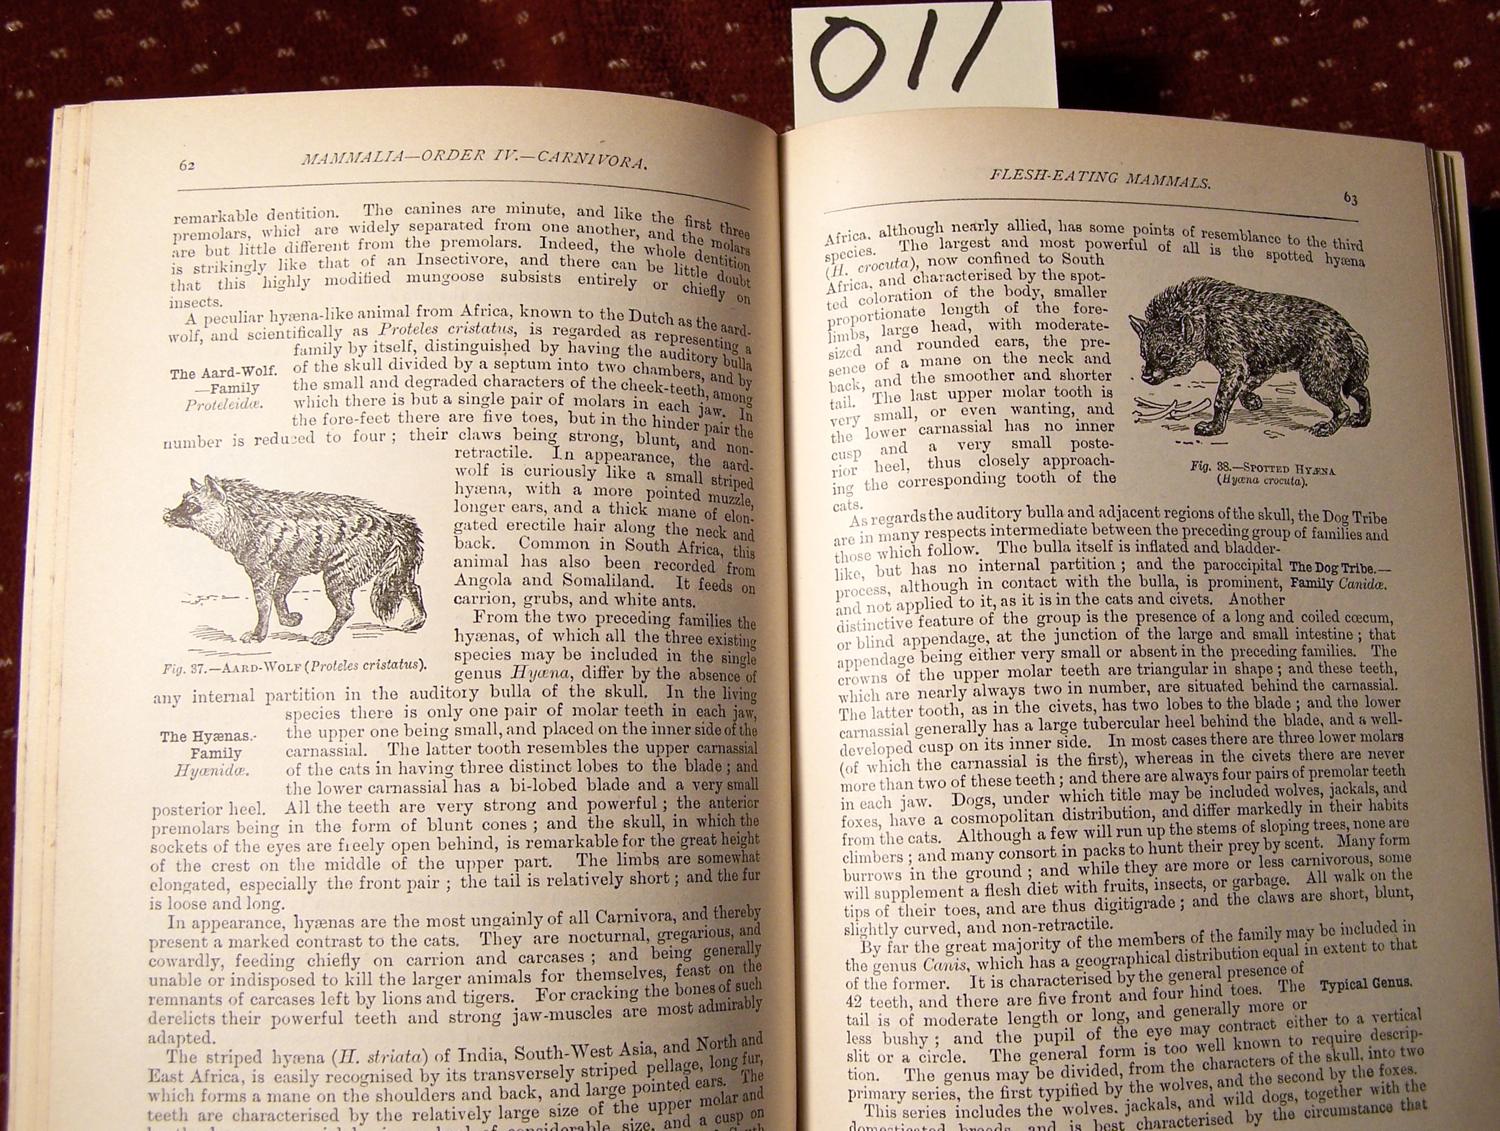 011
62
MAMMALIA—ORDER IV.—CARNIVORA.
remarkable dentition. The canines are minute, and like the first three
premolars, which are widely separated from one another, and the molars
are but little different from the premolars. Indeed, the whole dentition
is strikingly like that of an Insectivore, and there can be little doubt
that this highly modified mungoose subsists entirely or chiefly on
insects.
A peculiar hyæna-like animal from Africa, known to the Dutch as the aard-
wolf, and scientifically as Proteles cristatus, is regarded as representing a
family by itself, distinguished by having the auditory bulla
The Aard-Wolf.
—Family
Proteleidæ.
of the skull divided by a septum into two chambers, and by
the small and degraded characters of the cheek-teeth, among
which there is but a single pair of molars in each jaw. In
the fore-feet there are five toes, but in the hinder pair the
number is reduced to four; their claws being strong, blunt, and non-
retractile. In appearance, the aard-
wolf is curiously like a small striped
hyæna, with a more pointed muzzle,
longer ears, and a thick mane of elon-
gated erectile hair along the neck and
back. Common in South Africa, this
animal has also been recorded from
Angola and Somaliland. It feeds on
carrion, grubs, and white ants.
Fig. 37.—AARD-WOLF (Proteles cristatus).
From the two preceding families the
hyænas, of which all the three existing
species may be included in the single
genus Hyæna, differ by the absence of
any internal partition in the auditory bulla of the skull. In the living
species there is only one pair of molar teeth in each jaw,
The Hyænas.-
Family
Hyænidæ.
the upper one being small, and placed on the inner side of the
carnassial. The latter tooth resembles the upper carnassial
of the cats in having three distinct lobes to the blade; and
the lower carnassial has a bi-lobed blade and a very small
posterior heel. All the teeth are very strong and powerful; the anterior
premolars being in the form of blunt cones; and the skull, in which the
sockets of the eyes are freely open behind, is remarkable for the great height
of the crest on the middle of the upper part. The limbs are somewhat
elongated, especially the front pair; the tail is relatively short; and the fur
is loose and long.
In appearance, hyænas are the most ungainly of all Carnivora, and thereby
present a marked contrast to the cats. They are nocturnal, gregarious, and
cowardly, feeding chiefly on carrion and carcases; and being generally
unable or indisposed to kill the larger animals for themselves, feast on the
remnants of carcases left by lions and tigers. For cracking the bones of such
derelicts their powerful teeth and strong jaw-muscles are most admirably
adapted.
The striped hyæna (H. striata) of India, South-West Asia, and North and
East Africa, is easily recognised by its transversely striped pellage, long fur,
which forms a mane on the shoulders and back, and large pointed ears. The
teeth are characterised by the relatively large size of the upper molar and
considerable size, and a cusp on
FLESH-EATING MAMMALS.
63
Africa, although nearly allied, has some points of resemblance to the third
species. The largest and most powerful of all is the spotted hyæna
(H. crocuta), now confined to South
Africa, and characterised by the spot-
ted coloration of the body, smaller
proportionate length of the fore-
limbs, large head, with moderate-
sized and rounded ears, the pre-
sence of a mane on the neck and
back, and the smoother and shorter
tail. The last upper molar tooth is
very small, or even wanting, and
the lower carnassial has no inner
cusp and a very small poste-
rior heel, thus closely approach-
ing the corresponding tooth of the
cats.
Fig. 38.—SPOTTED HYÆNA
(Hyæna crocuta).
As regards the auditory bulla and adjacent regions of the skull, the Dog Tribe
are in many respects intermediate between the preceding group of families and
those which follow. The bulla itself is inflated and bladder-
like, but has no internal partition; and the paroccipital
The Dog Tribe.—
Family Canidæ.
process, although in contact with the bulla, is prominent,
and not applied to it, as it is in the cats and civets. Another
distinctive feature of the group is the presence of a long and coiled cœcum,
or blind appendage, at the junction of the large and small intestine; that
appendage being either very small or absent in the preceding families. The
crowns of the upper molar teeth are triangular in shape; and these teeth,
which are nearly always two in number, are situated behind the carnassial.
The latter tooth, as in the civets, has two lobes to the blade; and the lower
carnassial generally has a large tubercular heel behind the blade, and a well-
developed cusp on its inner side. In most cases there are three lower molars
(of which the carnassial is the first), whereas in the civets there are never
more than two of these teeth; and there are always four pairs of premolar teeth
in each jaw. Dogs, under which title may be included wolves, jackals, and
foxes, have a cosmopolitan distribution, and differ markedly in their habits
from the cats. Although a few will run up the stems of sloping trees, none are
climbers; and many consort in packs to hunt their prey by scent. Many form
burrows in the ground; and while they are more or less carnivorous, some
will supplement a flesh diet with fruits, insects, or garbage. All walk on the
tips of their toes, and are thus digitigrade; and the claws are short, blunt,
slightly curved, and non-retractile.
By far the great majority of the members of the family may be included in
the genus Canis, which has a geographical distribution equal in extent to that
of the former. It is characterised by the general presence of
42 teeth, and there are five front and four hind toes. The
Typical Genus.
tail is of moderate length or long, and generally more or
less bushy; and the pupil of the eye may contract either to a vertical
slit or a circle. The general form is too well known to require descrip-
tion. The genus may be divided, from the characters of the skull, into two
primary series, the first typified by the wolves, and the second by the foxes.
This series includes the wolves, jackals, and wild dogs, together with the
domesticated breeds, and is best characterised by the circumstance that